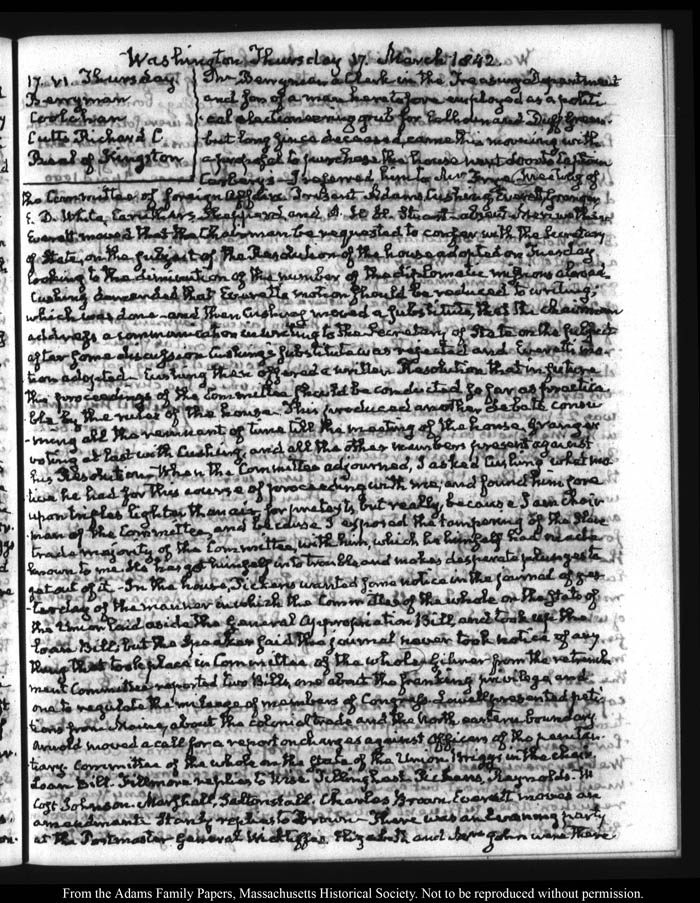 Washington Thursday 17. March 1842.
17. VI. Thursday
Berryman
Cutts Richard C.
of Kingston
Mr Berryman a Clerk in the Treasury Department
and son of a man heretofore employed as a politi
cal electioneering grub for Calhoun and Duff Green.
but long since deceased, came this morning with
a proposal to purchase the house next door to Captain
I referred him to Mr Frye. Meeting of
the Committee of foreign Affairs. Present Adams, Cushing, Everett, Granger
E. D. White, Caruthers, Shepperd, and A. H. H. Stuart absent Meriwether
Everett moved that the Chairman be requested to confer with the Secretary
of State, on the subject of the Resolution of the house adopted on Tuesday
looking to the diminution of the number of the diplomatic missions abroad.
Cushing demanded that Everett's motion should be reduced to writing;
which was done and then Cushing moved a substitute, that the chairman
address a communication in writing to the Secretary of State on the subject
after some discussion Cushing's substitute was rejected and Everett's mo-
tion adopted. Cushing then offered a written Resolution that in future
the proceedings of the Committee should be conducted so far as practica-
ble by the rules of the house. This produced another debate consu-
ming all the remnant of time till the meeting of the house, Granger
voting at last with Cushing, and all the other members present against
his Resolution. When the Committee adjourned, I asked Cushing what mo-
tive he had for this course of proceeding with me; and found him sore
upon trifles lighter than air, for pretexts but really, because I am Chair-
man of the Committee, and because I exposed the tampering of the Slave
trade majority of the Committee, with him, which he himself had made
known to me. He has got himself into trouble and makes desperate plunges to
get out of it. In the house, Pickens wanted some notice in the journal of yes-
terday of the manner in which the Committee of the whole on the State of
the Union laid aside the General Appropriation Bill, and took up the
Loan Bill, but the Speaker said the journal never took notice of any
thing that took place in Committee of the whole. Gilmer from the retrench-
ment Committee reported two Bills, one about the franking privilege, and
one to regulate the mileage of members of Congress. Lowell presented peti-
tions from Maine, about the colonial trade and the north eastern boundary.
Arnold moved a call for a report on charges against Officers of the peniten-
tiary. Committee of the whole on the State of the Union. Briggs in the chair
Loan Bill. Fillmore replies to Wise. Tillinghast. Pickens, Raynolds. W.
Cost Johnson. Marshall, Saltonstall. Charles Brown. Everett moves an
amendment. Stanly replies to Brown. There was an evening party
at the Postmaster General Wickliffe's. Elizabeth and were there
From the Adams Family Papers, Massachusetts Historical Society. Not to be reproduced without permission.